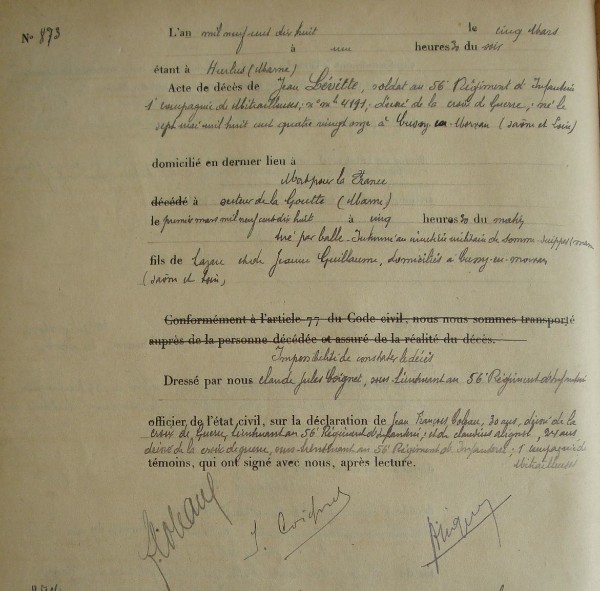 N° 873
L'an mil neuf cent dix huit le cinq Mars
à une heures 30 du soir
étant à Hurlus (Marne)
Acte de décès de Jean Lévitte, soldat au 56e Régiment d'Infanterie
1e compagnie de Mitrailleuses; n° mle 4191; décoré de la croix de Guerre; né le
sept mai mil huit cent quatre vingt onze à Cussy en Morvan (Saône et Loire)
domicilié en dernier lieu à
Mort pour la France
décédé à secteur de la Goutte (Marne)
le premier mars mil neuf cent dix huit à cinq heures 30 du matin
tué par balle - Inhumé au cimetière militaire de Somme-Suippes (Marne
fils de Lazare et de Jeanne Guillaume, domiciliés à Cussy-en-Morvan
(Saône et Loire)
Conformément à l'article 77 du Code civil, nous nous sommes transporté
auprès de la personne décédée et assuré de la réalité du décès.
Impossibilité de constater le décès
Dressé par nous Claude Jules Coignet, sous Lieutenant au 56e Régiment d'Infanterie
officier de l'état civil, sur la déclaration de Jean François 30 ans, décoré de la
croix de Guerre, Lieutenant au 56e Régiment d'Infanterie; et de Claudius 24 ans
décoré de la croix de guerre, sous-lieutenant au 56e Régiment d'Infanterie; 1e compagnie de
Mitrailleuses
témoins, qui ont signé avec nous, après lecture.
J. Coignet